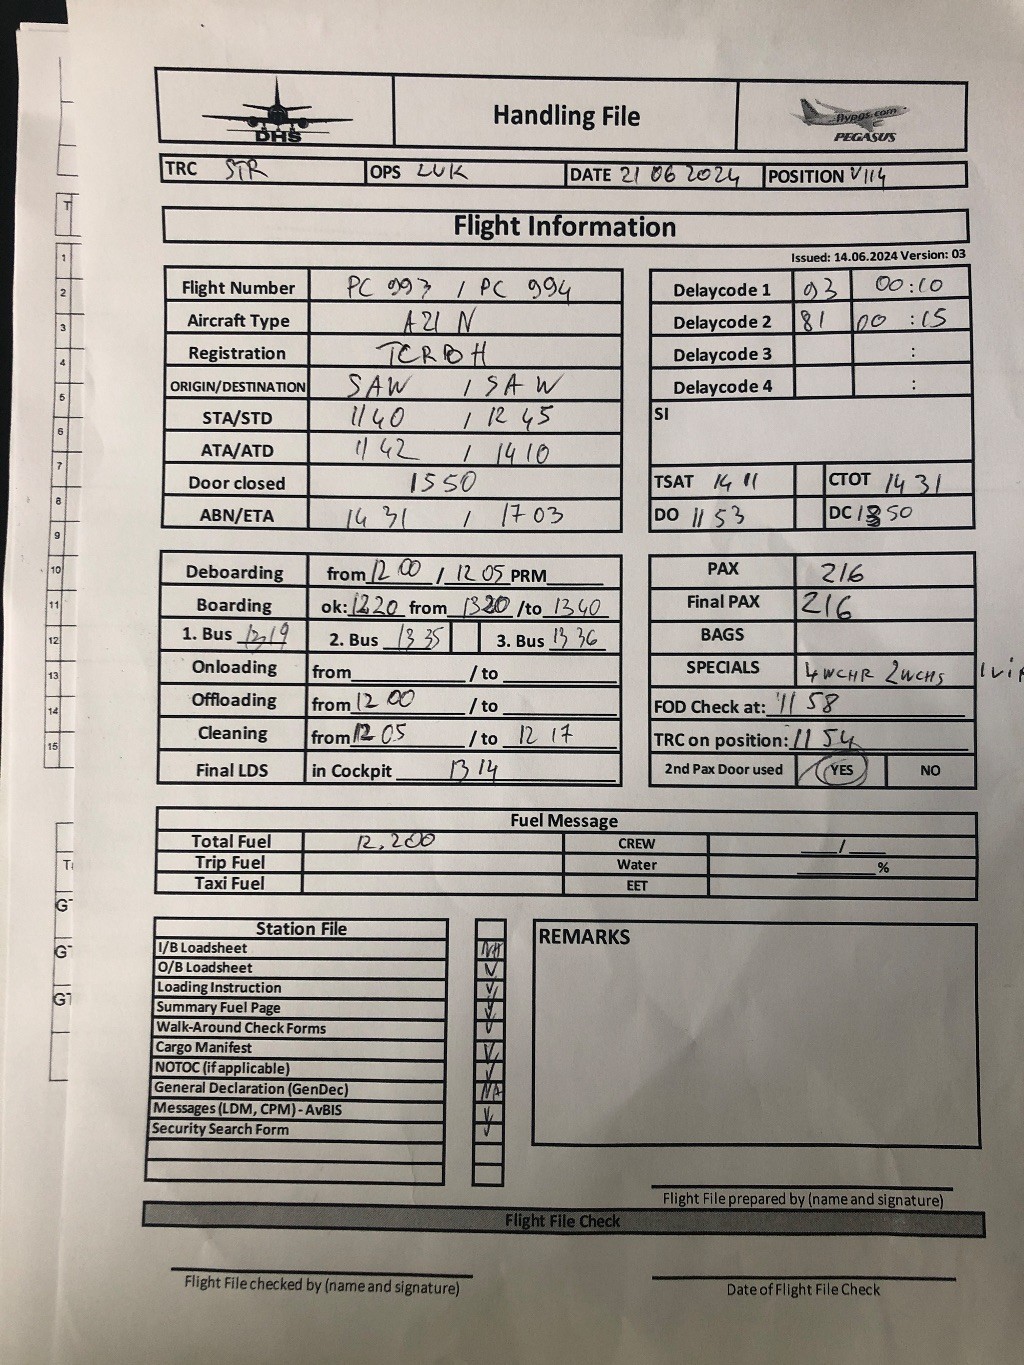 DHS
Handling File
flypgs.com
PEGASUS
TRC STR OPS LUK DATE 21 06 2024 POSITION V114
Flight Information
Issued: 14.06.2024 Version: 03
Flight Number PC 993 / PC 994
Aircraft Type A21N
Registration TCRBH
ORIGIN/DESTINATION SAW / SAW
STA/STD 1140 / 1245
ATA/ATD 1142 / 1410
Door closed 1550
ABN/ETA 1431 / 1703
Delaycode 1 93 00:10
Delaycode 2 81 00:15
Delaycode 3 :
Delaycode 4 :
SI
TSAT 1411 CTOT 1431
DO 1153 DC 50
Deboarding from 1200 / 1205 PRM
Boarding ok: 1220 from 1320 /to 1340
1. Bus 1319 2. Bus 1335 3. Bus 1336
Onloading from / to
Offloading from 1200 / to
Cleaning from 1205 / to 1217
Final LDS in Cockpit 1314
PAX 216
Final PAX 216
BAGS
SPECIALS 4WCHR 2WCHS
FOD Check at: 1158
TRC on position: 1154
2nd Pax Door used YES NO
Fuel Message
Total Fuel 12,200 CREW /
Trip Fuel Water %
Taxi Fuel EET
Station File
I/B Loadsheet NA
O/B Loadsheet ✓
Loading Instruction ✓
Summary Fuel Page ✓
Walk-Around Check Forms ✓
Cargo Manifest ✓
NOTOC (if applicable) ✓
General Declaration (GenDec) NA
Messages (LDM, CPM) - AvBIS ✓
Security Search Form ✓
REMARKS
Flight File prepared by (name and signature)
Flight File Check
Flight File checked by (name and signature)
Date of Flight File Check
T
1
2
3
4
5
6
7
8
9
10
11
12
13
14
15